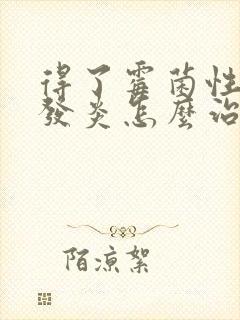 得了霉菌性
發炎怎麼治
陌涼絮